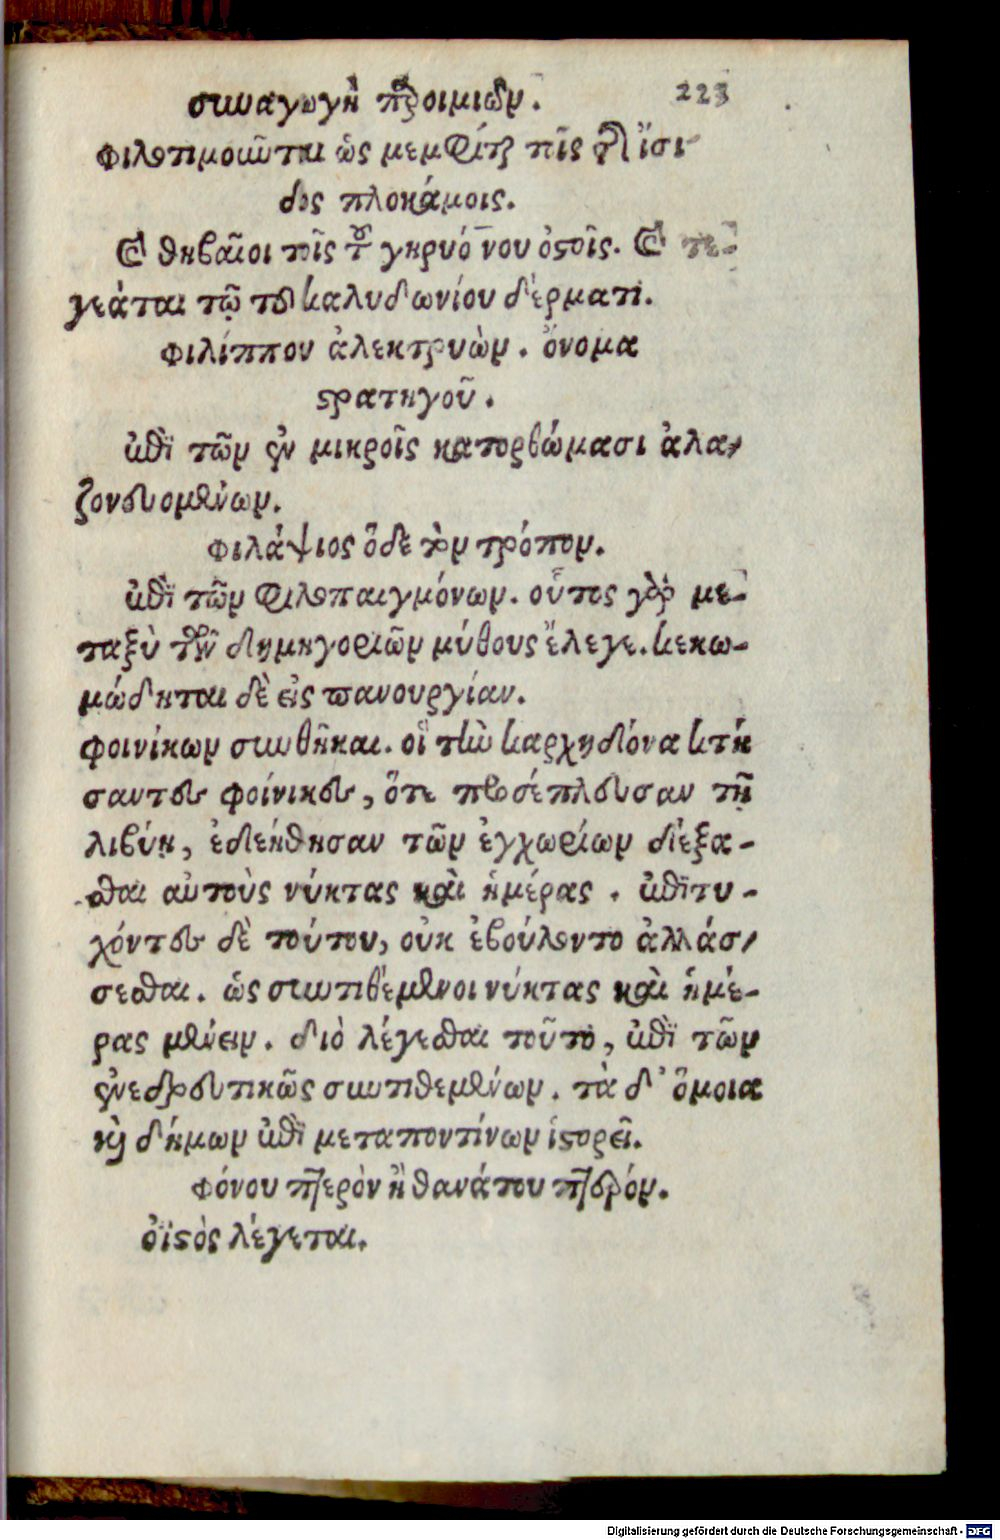 συναγωγὴ παροιμιῶν. 223
φιλοτιμοῦνται ὡς μεμφίται τοῖς τῆς ἴσι-
δος πλοκάμοις.
Καὶ θηβαῖοι τοῖς τοῦ γηρυόνου ὀστοῖς. Καὶ τε-
γεάται τῷ τοῦ καλυδωνίου δέρματι.
φιλίππου ἀλεκτρυών. ὄνομα
στρατηγοῦ.
ἐπὶ τῶν ἐν μικροῖς κατορθώμασι ἀλα-
ζονευομένων.
φιλάψιος ὅδε τὸν τρόπον.
ἐπὶ τῶν φιλοπαιγμόνων. οὗτος γὰρ με-
ταξὺ τῶν δημηγοριῶν μύθους ἔλεγε. κεκω-
μώδηται δὲ εἰς πανουργίαν.
φοινίκων συνθῆκαι. οἱ τὴν καρχηδόνα κτή
σαντες φοίνικες, ὅτε προσέπλευσαν τῇ
λιβύῃ, ἐδεήθησαν τῶν ἐγχωρίων δέξα-
σθαι αὐτοὺς νύκτας καὶ ἡμέρας. ἐπιτυ-
χόντες δὲ τούτου, οὐκ ἐβούλοντο ἀλλάσ-
σεσθαι. ὡς συντιθέμενοι νύκτας καὶ ἡμέ-
ρας μένειν. διὸ λέγεσθαι τοῦτο, ἐπὶ τῶν
ἐνεδρευτικῶς συντιθεμένων. τὰ δ' ὅμοια
καὶ δήμων ἐπὶ μεταποντίνων ἱστορεῖ.
φόνου πτερὸν ἢ θανάτου πτερόν.
ὀϊστὸς λέγεται.
Digitalisierung gefördert durch die Deutsche Forschungsgemeinschaft - DFG